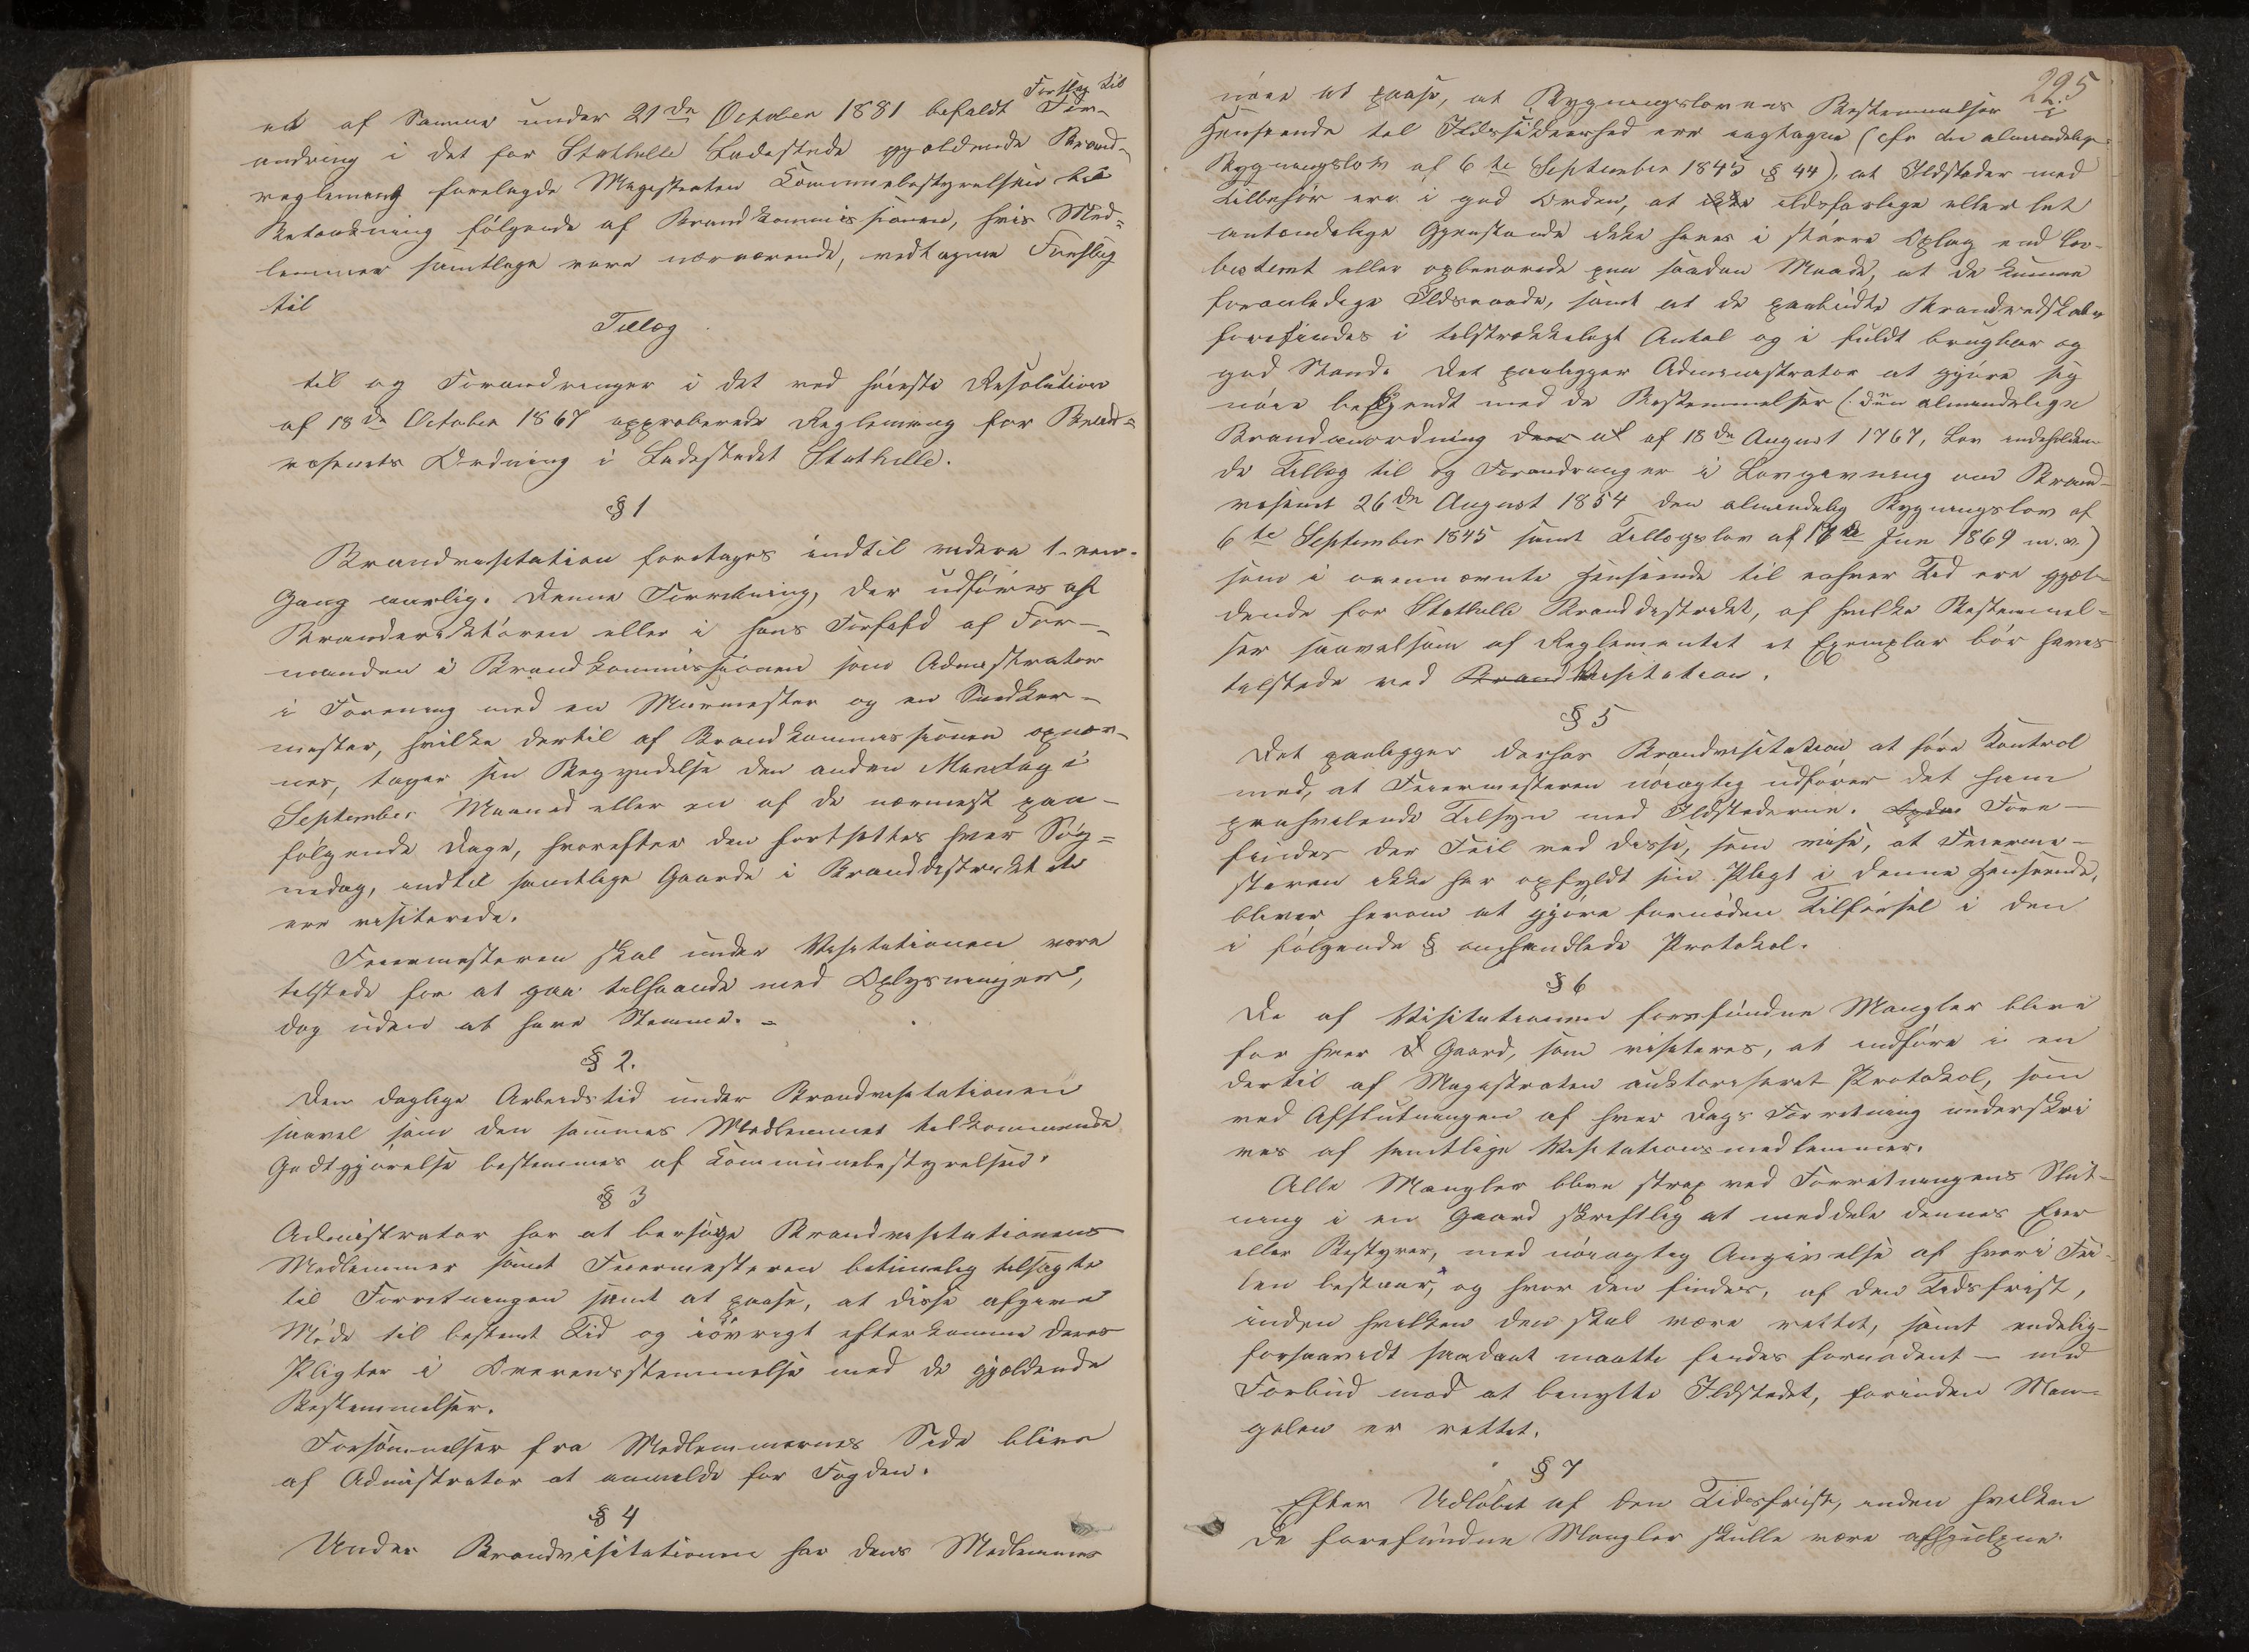 Forslag til
et af Samme under 21de October 1881 befalet For-
andring i det for Stathelle Ladested gjældende Brand-
reglement forelagde Magistraten Kommunebestyrelsen til
Betænkning følgende af Brandkommissionen, hvis Med-
lemmer samtlige vare nærværende, vedtagne Forslag
til
Tillæg
til og Forandringer i det ved høieste Resolution
af 18de October 1867 approberede Reglement for Brand-
væsenets Ordning i Ladestedet Stathelle.
§ 1
Brandvisitation foretages indtil videre 1-een-
Gang aarlig. Denne Forretning, der udføres af
Branddirektøren eller i hans Forfald af For-
manden i Brandkommissionen som Admistrator
i Forening med en Murmester og en Snedker-
mester, hvilke dertil af Brandkommissionen opnæv-
nes, tager sin Begyndelse den anden Mandag i
September Maaned eller en af de nærmest paa-
følgende Dage, hvorefter den fortsættes hver Søg-
nedag, indtil samtlige Gaarde i Branddistriktet
ere visiterede.
Feiermesteren skal under Visitationen være
tilstede for at gaa tilhaande med Oplysninger,
dog uden at have Stemme. -
§ 2.
Den daglige Arbeidstid under Brandvisitationen
saavel som den sammes Medlemmer tilkommende
Godtgjørelse bestemmes af Kommunebestyrelsen.
§ 3
Admistrator har at besørge Brandvisitationens
Medlemmer samt Feiermesteren betimelig tilsagte
til Forretningen samt at paase, at disse afgive
Møde til bestemt Tid og iøvrigt efterkomme deres
Pligter i Overensstemmelse med de gjældende
Bestemmelser.
Forsømmelser fra Medlemmernes Side blive
af Admistrator at anmelde for Fogden.
§ 4
Under Brandvisitationen har dens Medlemmer
295
nøie at paase, at Bygningslovens Bestemmelser i
Henseende til Ildssikkerhed ere iagtagne (cfr den almindelige
Bygningslov af 6te September 1845 § 44), at Ildsteder med
Tilbehør ere i god Orden, at ikke ildsfarlige eller let
antændelige Gjenstande ikke haves i større Oplag end lov-
bestemt eller opbevarede paa saadan Maade, at de kunne
foranledige Ildsvaade, samt at de paabudte Brandredskaber
forefindes i tilstrækkeligt Antal og i fuldt brugbar og
god Stand. Det paaligger Administrator at gjøre sig
nøie bekjendt med de Bestemmelser (: den almindelige
Brandanordning af 18de August 1767, Lov indeholden-
de Tillæg til og Forandringer i Lovgivning om Brand-
væsenet 26de August 1854 den almindelig Bygningslov af
6te September 1845 samt Tillægslov af 17de Juni 1869 m.v.)
som i ovennævnte Henseende til enhver Tid ere gjæl-
dende for Stathelle Branddistrikt, af hvilke Bestemmel-
ser saavelsom af Reglementet et Exemplar bør haves
tilstede ved Brand Visitation.
§ 5
Det paaligger derhos Brandvisitation at føre Kontrol
med, at Feiermesteren nøiagtig udfører det ham
paahvilende Tilsyn med Ildstederne. Fore-
findes der Feil ved disse, som vise, at Feierme-
steren ikke har opfyldt sin Pligt i denne Henseende,
bliver herom at gjøre fornøden Tilførsel i den
i følgende § omhandlede Protokol.
§ 6
De af Visitationen forefundne Mangler blive
for hver Gaard, som visiteres, at indføre i en
dertil af Magistraten auktoriseret Protokol, som
ved Afslutningen af hver Dags Forretning underskri
ves af samtlige Visitationsmedlemmer.
Alle Mangler blive strax ved Forretningens Slut-
ning i en Gaard skriftlig at meddele dennes Eier
eller Bestyrer, med nøiagtig Angivelse af hvori Fei-
len bestaar, og hvor den findes, af den Tidsfrist,
inden hvilken den skal være rettet, samt endelig-
forsaavidt saadant maatte findes fornødent - med
Forbud mod at benytte Ildstedet, forinden Man-
gelen er rettet.
§ 7
Efter Udløbet af den Tidsfrist, inden hvilken
de forefundne Mangler skulle være afhjulpne